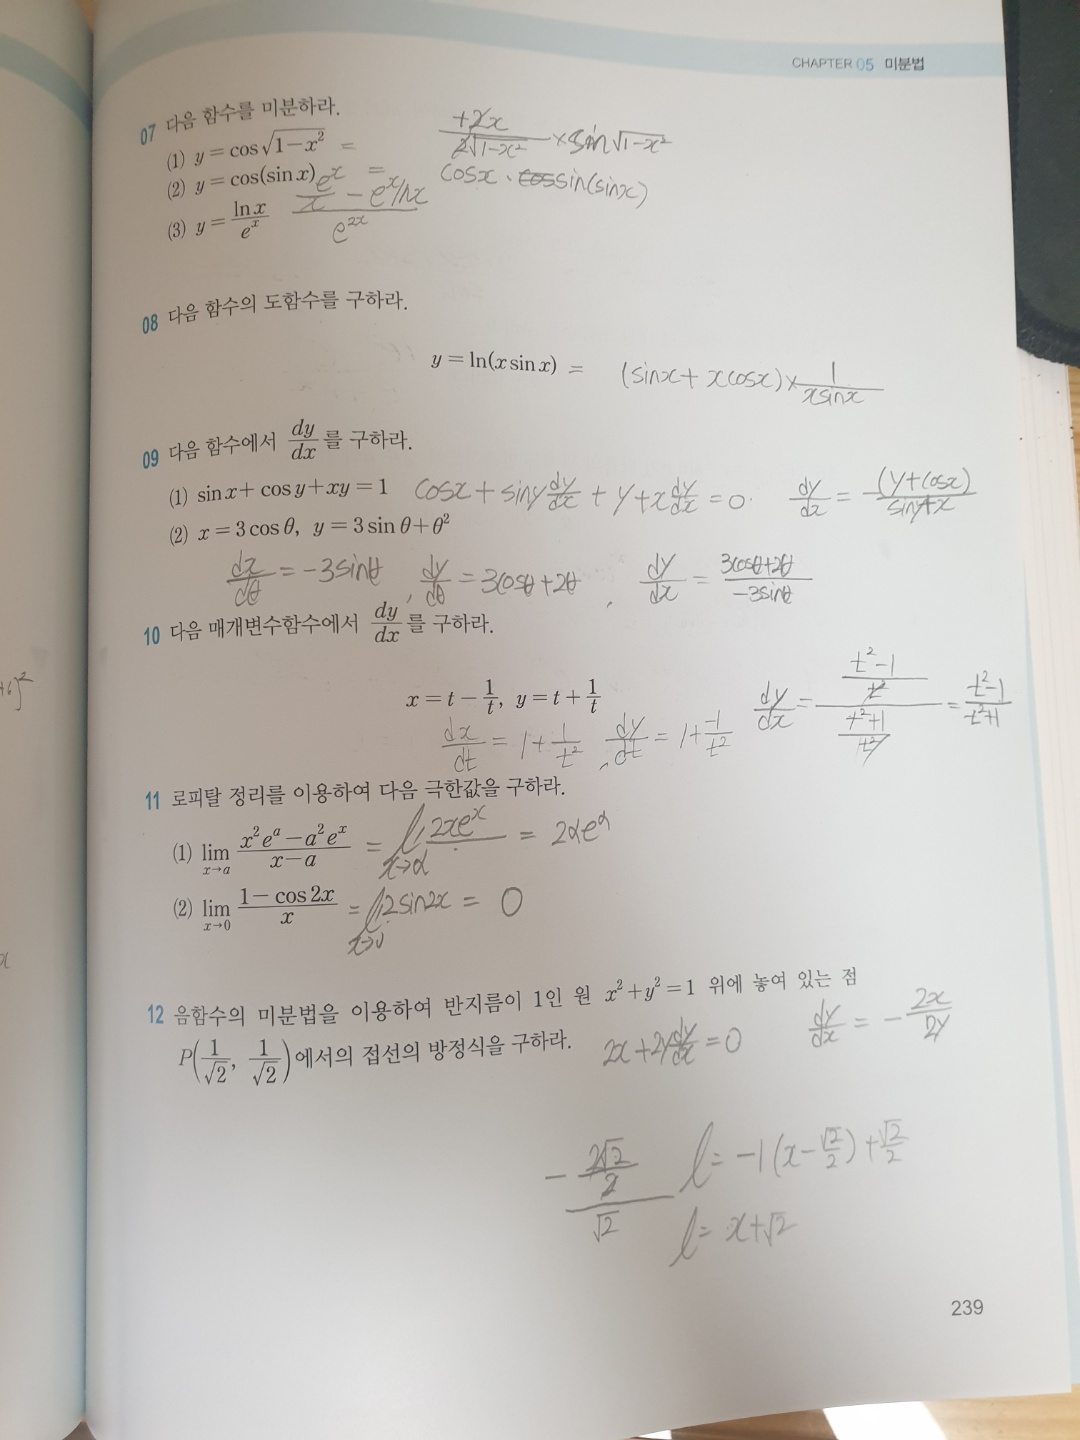 CHAPTER 05 미분법
07 다음 함수를 미분하라.
(1) y = cos√(1-x²) = +2x/(2√(1-x²)) × sin√(1-x²)
(2) y = cos(sin x) = cosx · sin(sinx)
(3) y = ln x / e^x (e^x/x - e^x lnx)/e^(2x)
08 다음 함수의 도함수를 구하라.
y = ln(x sin x) = (sinx + xcosx) × 1/(xsinx)
09 다음 함수에서 dy/dx 를 구하라.
(1) sin x + cos y + xy = 1 cosx + siny dy/dx + y + x dy/dx = 0. dy/dx = (y+cosx)/(siny+x)
(2) x = 3 cos θ, y = 3 sin θ + θ²
dx/dθ = -3sinθ, dy/dθ = 3cosθ+2θ, dy/dx = (3cosθ+2θ)/(-3sinθ)
10 다음 매개변수함수에서 dy/dx 를 구하라.
x = t - 1/t, y = t + 1/t dy/dx = ((t²-1)/t²)/((t²+1)/t²) = (t²-1)/(t²+1)
dx/dt = 1 + 1/t², dy/dt = 1 + -1/t²
11 로피탈 정리를 이용하여 다음 극한값을 구하라.
(1) lim x→a (x²e^a - a²e^x)/(x-a) = lim x→α 2xe^x = 2αe^α
(2) lim x→0 (1 - cos 2x)/x = lim x→0 2sin2x = 0
12 음함수의 미분법을 이용하여 반지름이 1인 원 x² + y² = 1 위에 놓여 있는 점
P(1/√2, 1/√2)에서의 접선의 방정식을 구하라. 2x + 2y dy/dx = 0 dy/dx = - 2x/2y
- (2√2/2)/√2 l = -1(x - √2/2) + √2/2
l = x + √2
239